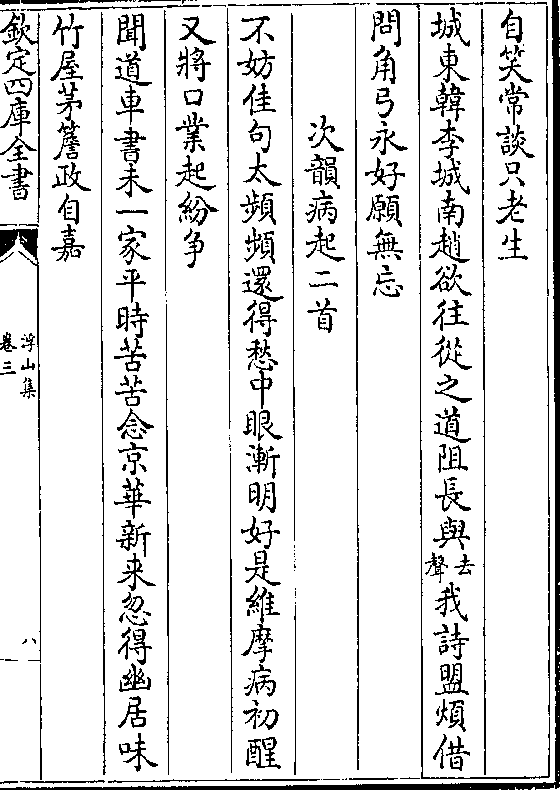 自笑常談只老生
城東韓李城南趙欲往從之道阻長與去聲我詩盟煩借
問角弓永好願無忘
次韻病起二首
不妨佳句太頻頻還得愁中眼漸明好是維摩病初醒
又將口業起紛争
聞道車書未一家平時苦苦念京華新来忽得幽居味
竹屋茅簷政自嘉
欽定四庫全書
浮山集
卷三
八